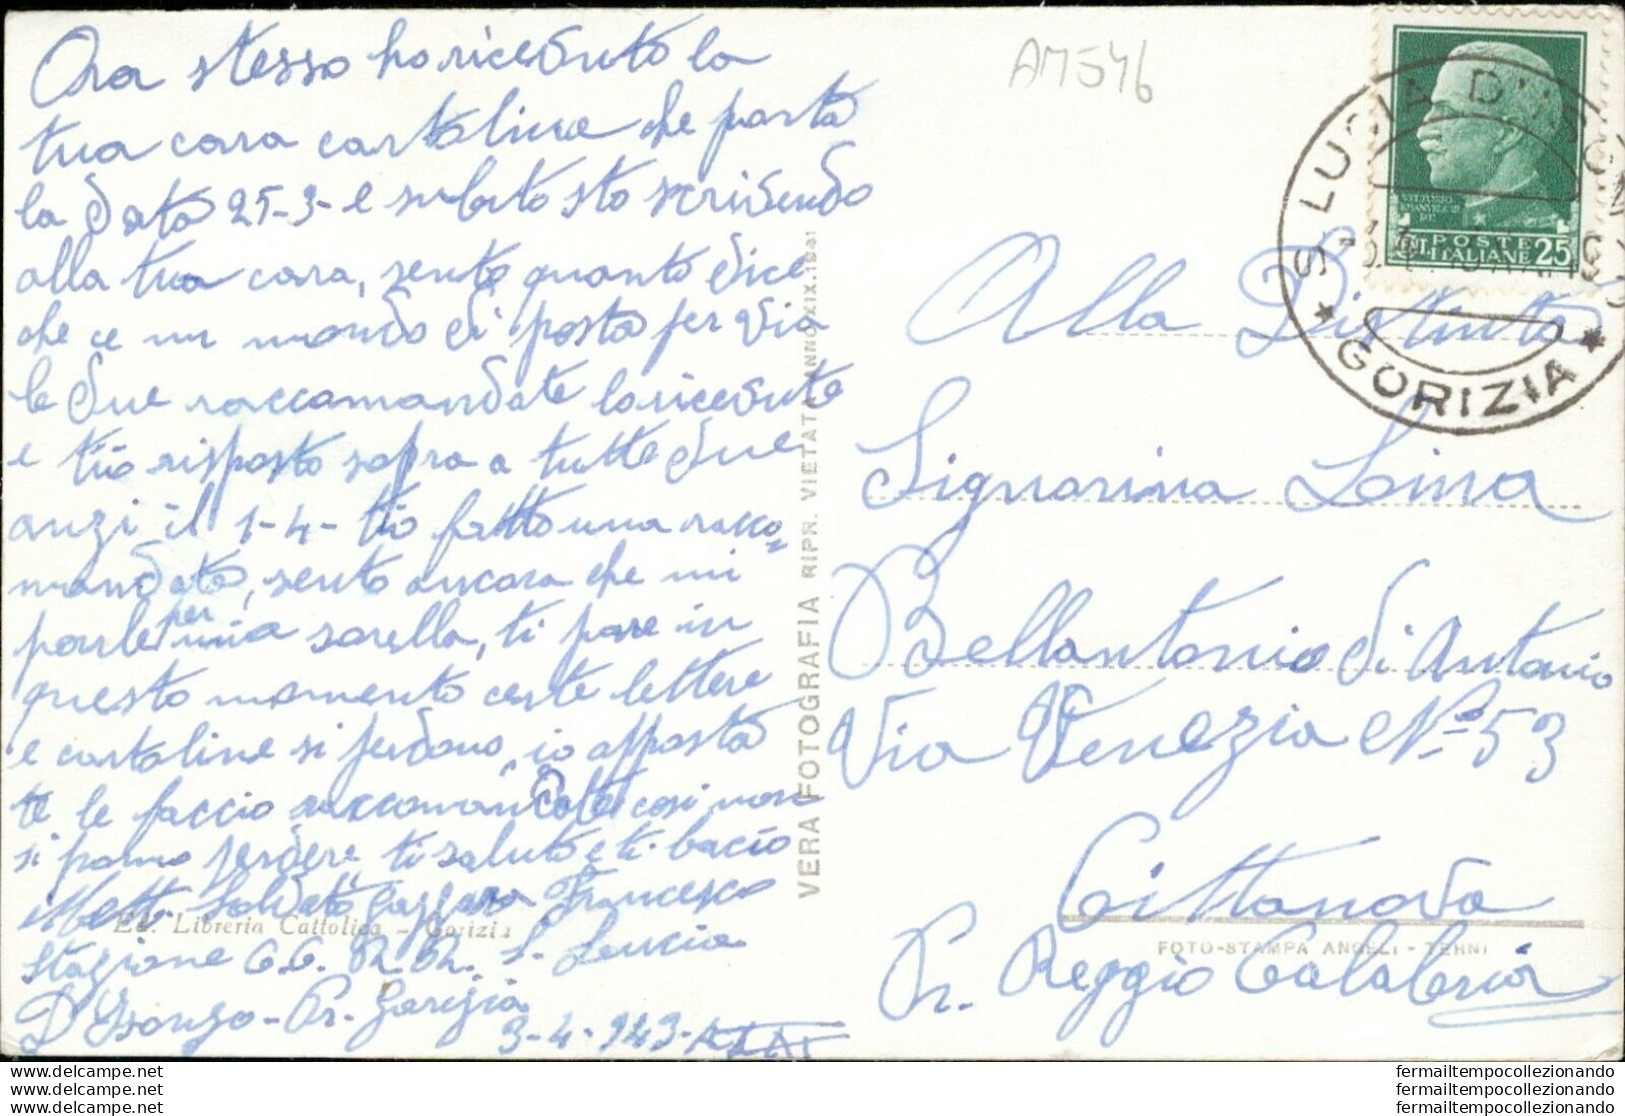 Ora stesso ho ricevuto la
tua cara cartolina che porta
la data 25-3- e subito sto scrivendo
alla tua cara, sento quanto dice
che ce un mondo di posta per via
le due raccomandate lo ricevute
e tiò risposto sopra a tutte due
anzi il 1-4- tiò fatto una racco=
mandata, sento ancora che mi
parle per mia sorella, ti pare in
questo momento certe lettere
e cartoline si perdono, io apposta
te le faccio raccomandate così non
si pomo perdere, ti saluto e ti bacio
Mitt. Soldato Francesco
Stazione CC. RR. S. Lucia
D'Isonzo - Pr. Gorizia
3-4-943-
Ed. Libreria Cattolica - Gorizia
VERA FOTOGRAFIA RIPR. VIETATA ANNO XIX.1941
AM546
POSTE
ITALIANE 25
S. LUCIA D'ISONZO
GORIZIA
Alla Distinta
Signorina Loina
Bellantonio di Antonio
Via Venezia Nº 53
Cittanova
FOTO-STAMPA ANGELI - TERNI
Pr. Reggio Calabria
www.delcampe.net
www.delcampe.net
www.delcampe.net
fermailtempocollezionando
fermailtempocollezionando
fermailtempocollezionando